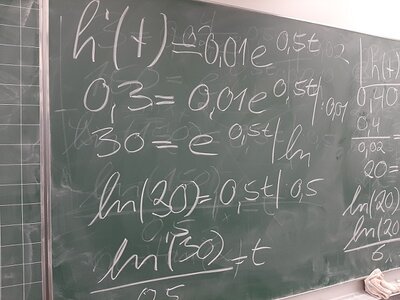 h'(t) = 0,01e^0,5t
0,3 = 0,01e^0,5t |:0,01
30 = e^0,5t | ln
ln(30) = 0,5t | 0,5
ln(30) = t
0,5
h(t)
0,40
0,4
0,02
20 =
ln(20)
ln(20)